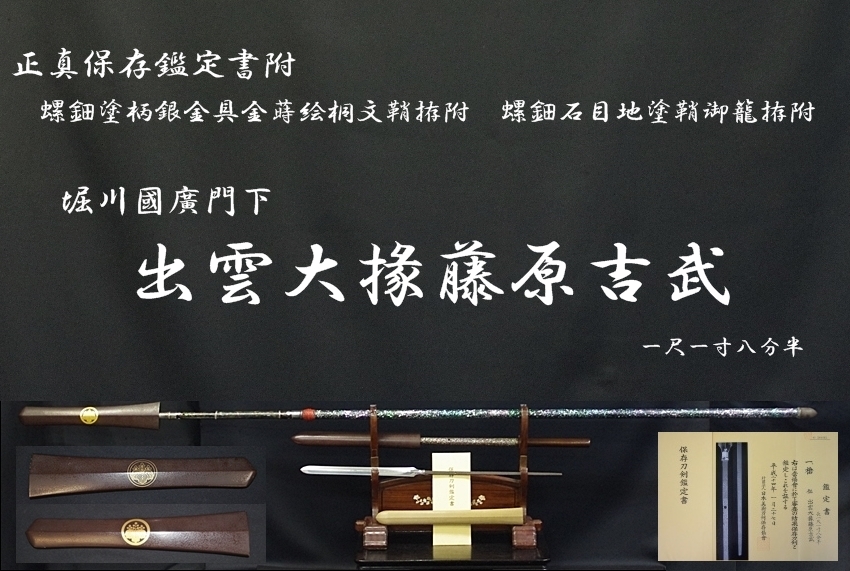 正真保存鑑定書附
螺鈿塗柄銀金具金蒔絵桐文鞘拵附　螺鈿石目地塗鞘御籠拵附
堀川國廣門下
出雲大掾藤原吉武
一尺一寸八分半
保存刀剣鑑定書
保存刀剣鑑定書
鑑定書
一、槍